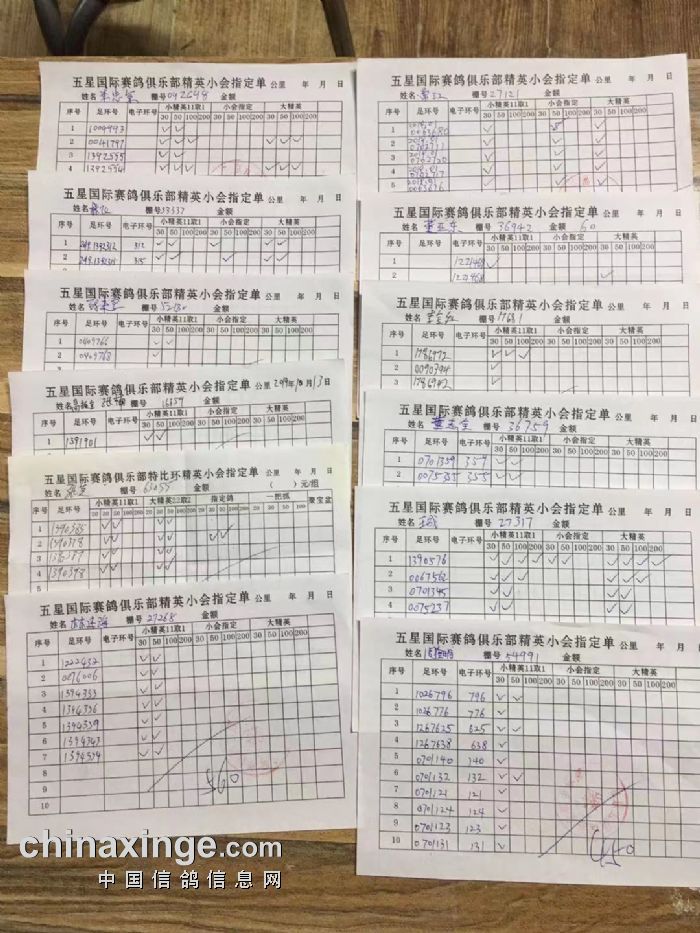 五星国际赛鸽俱乐部精英小会指定单 公里 年 月 日
姓名 棚号 092648 金额
序号 足环号 电子环号 小精英11取1 小会指定 大精英
30 50 100 200 30 50 100 200 30 50 100 200
1 1004993
2 0041797
3 1392595
4 1392594
五星国际赛鸽俱乐部精英小会指定单 公里 年 月 日
姓名 棚号 金额
序号 足环号 电子环号 小精英11取1 小会指定 大精英
30 50 100 200 30 50 100 200 30 50 100 200
1 312
2 315
五星国际赛鸽俱乐部精英小会指定单 公里 年 月 日
姓名 棚号 金额
序号 足环号 电子环号 小精英11取1 小会指定 大精英
30 50 100 200 30 50 100 200 30 50 100 200
1 0409766
2 0409768
五星国际赛鸽俱乐部精英小会指定单 公里 年 月 日
姓名 棚号 金额
序号 足环号 电子环号 小精英11取1 小会指定 大精英
30 50 100 200 30 50 100 200 30 50 100 200
1 1391901
五星国际赛鸽俱乐部特比环精英小会指定单 公里 年 月 日
姓名 棚号 63055 金额 ( )元/组
序号 足环号 小精英11取1 大精英22取2 指定鸽 一把抓 聚宝盆
1
2 1390378
3
4 1390398
5
五星国际赛鸽俱乐部精英小会指定单 公里 年 月 日
姓名 棚号 27268 金额
序号 足环号 电子环号 小精英11取1 小会指定 大精英
30 50 100 200 30 50 100 200 30 50 100 200
1 1222432
2 0076006
3 1394333
4 1394336
5 1394339
6 1394343
7 1394334
8
9
10
560
五星国际赛鸽俱乐部精英小会指定单 公里 年 月 日
姓名 棚号 27121 金额
序号 足环号 电子环号 小精英11取1 小会指定 大精英
30 50 100 200 30 50 100 200 30 50 100 200
1
2
3
4
5
五星国际赛鸽俱乐部精英小会指定单 公里 年 月 日
姓名 董亚东 棚号 36942 金额 60
序号 足环号 电子环号 小精英11取1 小会指定 大精英
30 50 100 200 30 50 100 200 30 50 100 200
1 1221468
2 1221468
五星国际赛鸽俱乐部精英小会指定单 公里 年 月 日
姓名 李金红 棚号 17681 金额
序号 足环号 电子环号 小精英11取1 小会指定 大精英
30 50 100 200 30 50 100 200 30 50 100 200
1 1786972
2 0090394
3 1786942
五星国际赛鸽俱乐部精英小会指定单 公里 年 月 日
姓名 棚号 36759 金额
序号 足环号 电子环号 小精英11取1 小会指定 大精英
30 50 100 200 30 50 100 200 30 50 100 200
1 0701359 359
2 0075355 355
五星国际赛鸽俱乐部精英小会指定单 公里 年 月 日
姓名 棚号 27317 金额
序号 足环号 电子环号 小精英11取1 小会指定 大精英
30 50 100 200 30 50 100 200 30 50 100 200
1 1390576
2 0067562
3 0701345
4 0075237
五星国际赛鸽俱乐部精英小会指定单 公里 年 月 日
姓名 棚号 54991 金额
序号 足环号 电子环号 小精英11取1 小会指定 大精英
30 50 100 200 30 50 100 200 30 50 100 200
1 1026796 796
2 1026776 776
3 1267625 625
4 1267638 638
5 0701140 140
6 0701132 132
7 0701121 121
8 0701124 124
9 0701123 123
10 0701131 131
450
chinaxinge.com
中国信鸽信息网